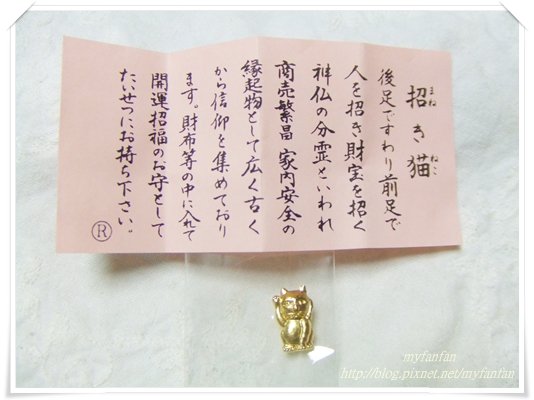 招き猫
まね
ねこ
後足ですわり前足で
人を招き財宝を招く
神仏の分霊といわれ
商売繁昌 家内安全の
縁起物として広く古く
から信仰を集めており
ます。財布等の中に入れて
開運招福のお守として
たいせつにお持ち下さい。
R
myfanfan
http://blog.pixnet.net/myfanfan